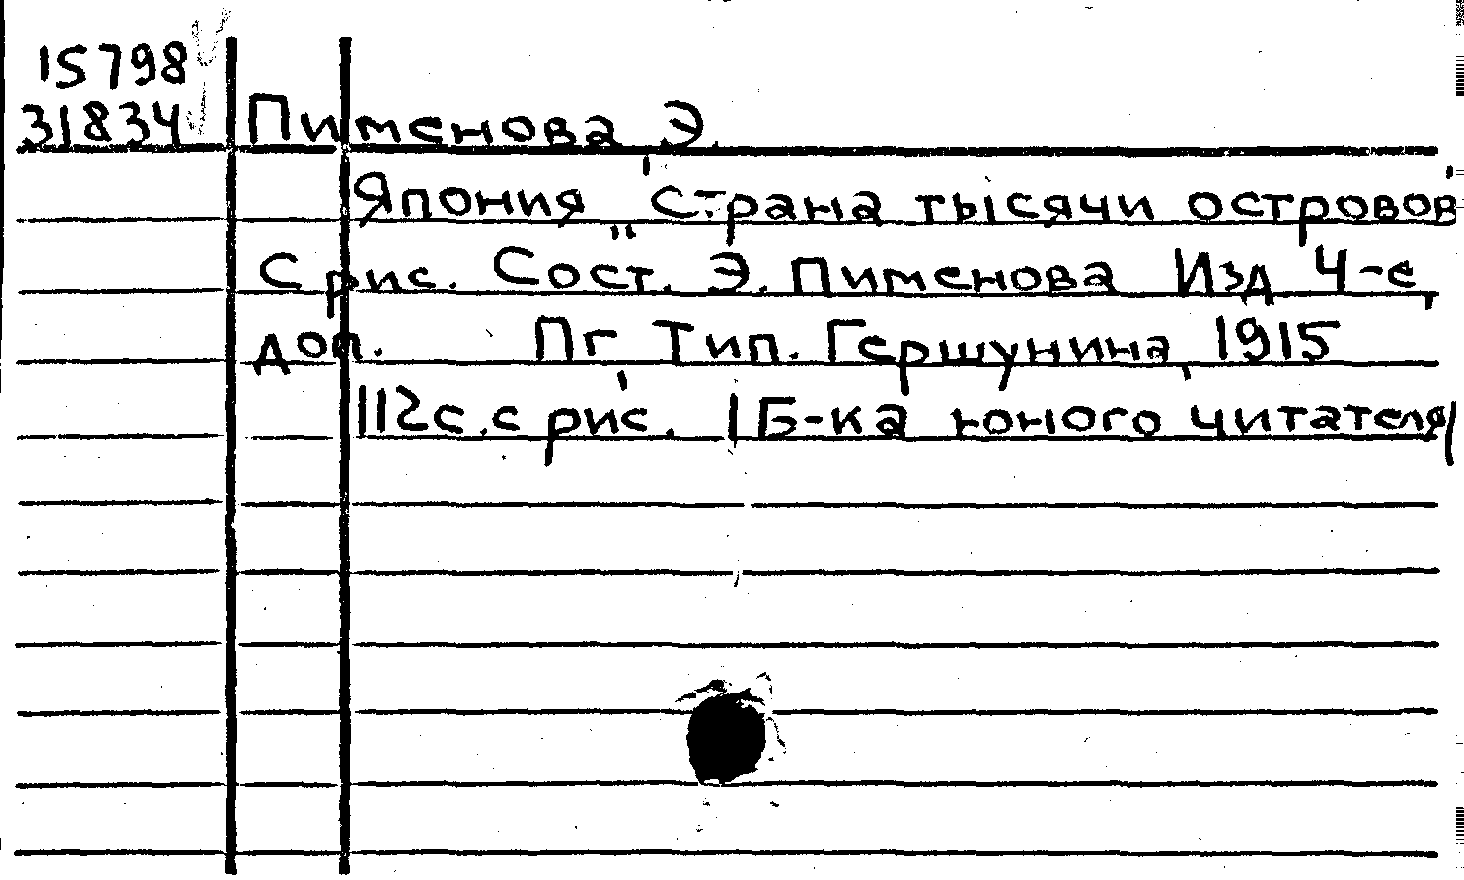 15798
31834 Пименова Э.
Япония "Страна тысячи островов"
С рис. Сост. Э. Пименова Изд 4-е,
доп. Пг Тип. Гершунина, 1915
112с. с рис. /Б-ка юного читателя/